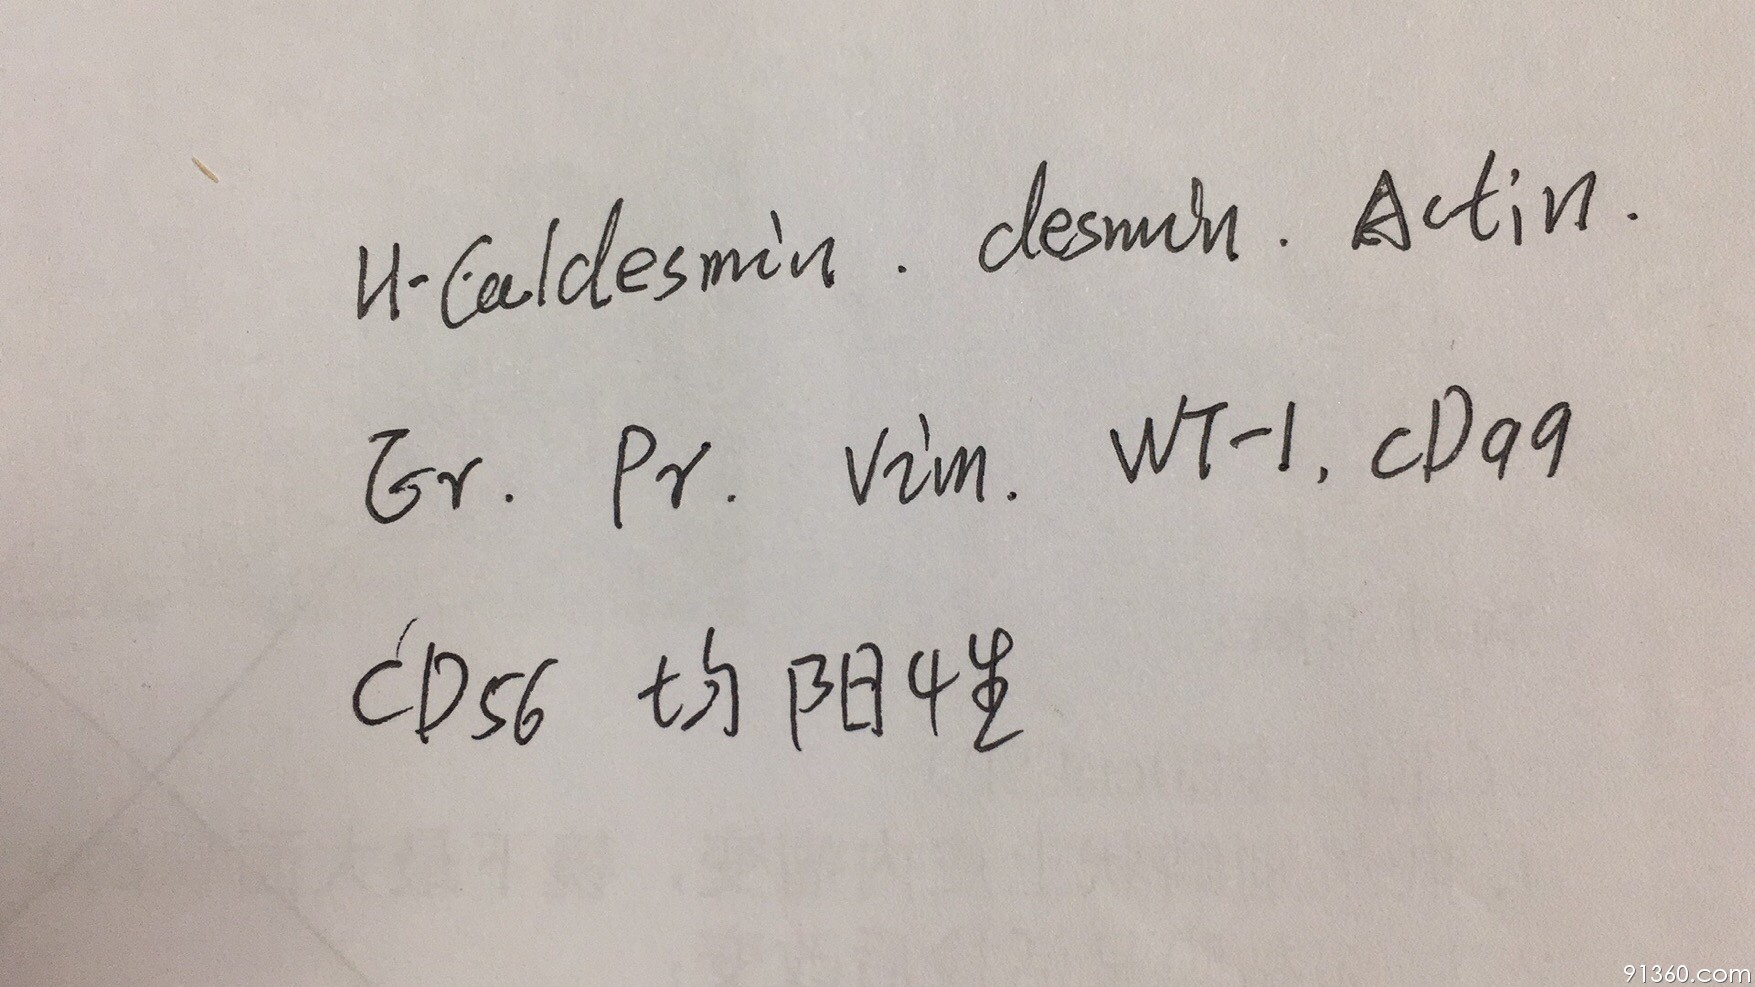 H-Caldesmin. desmin. Actin.
Er. Pr. Vim. WT-1, CD99
CD56 均阳性
91360.com